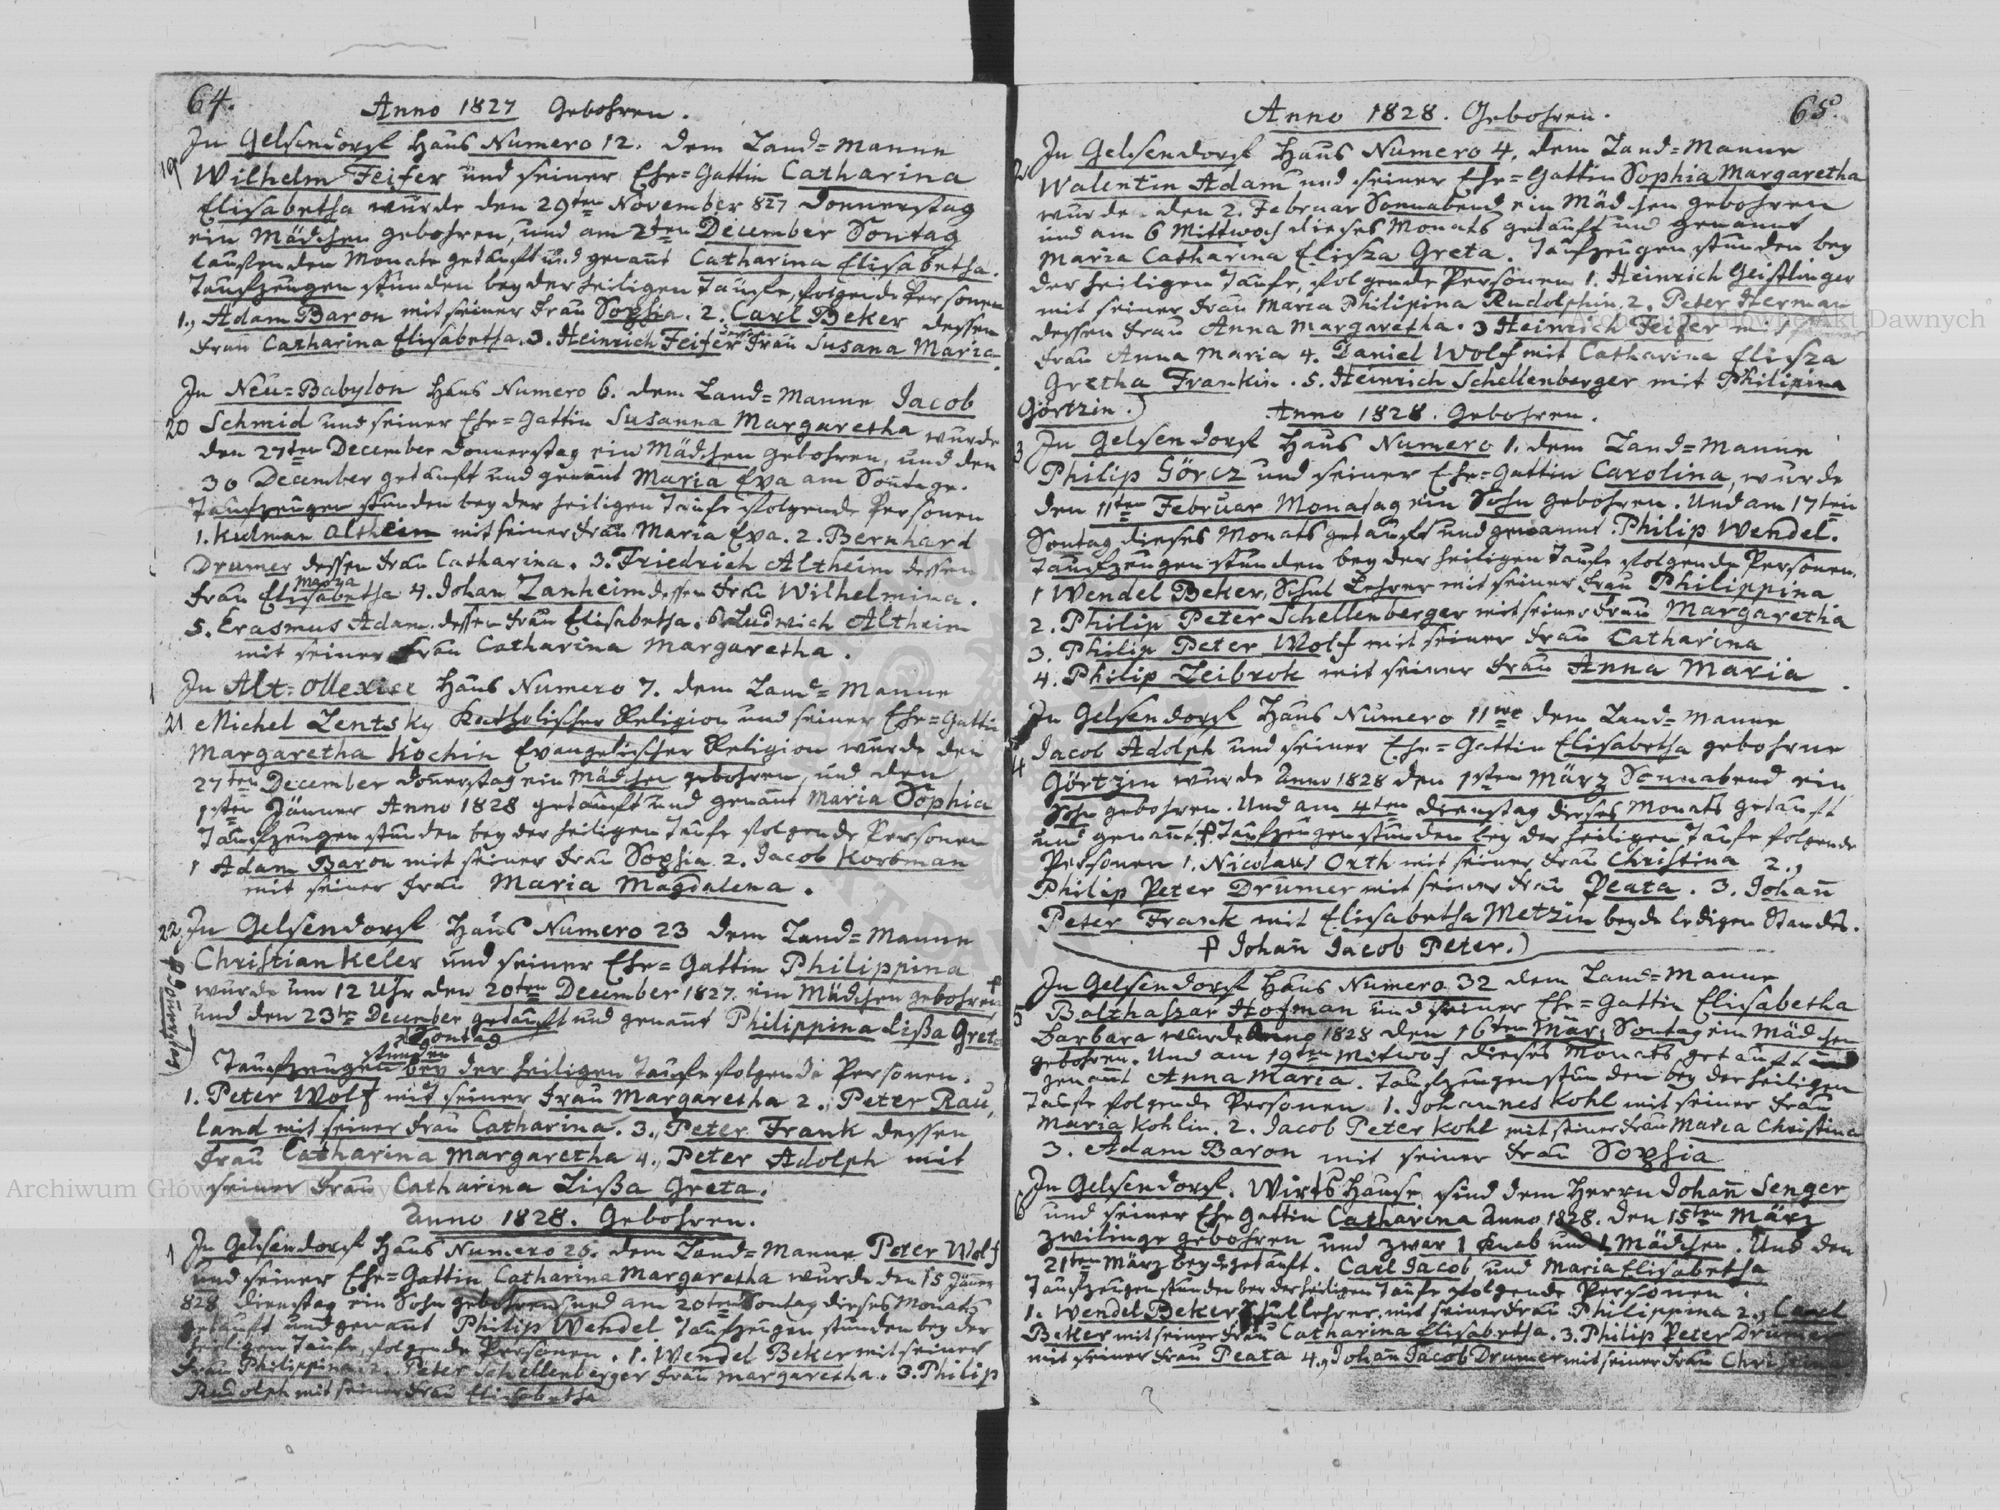 64.
Anno 1827 Gebohren.
In Gelsendorf Haus Numero 12. dem Land=Manne
19 Wilhelm Feifer und seiner Ehe=Gattin Catharina
Elisabetha wurde den 29ten November 827 Donnerstag
ein Mädchen gebohren, und am 2ten December Sontag
laufenden Monats getauft und genant Catharina Elisabetha.
Taufzeugen stunden bey der heiligen Taufe, folgende Personen
1., Adam Baron mit seiner Frau Sophia. 2. Carl Beker dessen
Frau Catharina Elisabetha. 3. Heinrich Feifer dessen Frau Susana Maria.
In Neu=Babylon Haus Numero 6. dem Land=Manne Jacob
20 Schmid und seiner Ehe=Gattin Susanna Margaretha wurde
den 27ten December Donnerstag ein Mädchen gebohren, und den
30 December getauft und genant Maria Eva am Sontage.
Taufzeugen stunden bey der heiligen Taufe folgende Personen
1. Kulman Altheim mit seiner Frau Maria Eva. 2. Bernhard
Drumer dessen Frau Catharina. 3. Friedrich Altheim dessen
Frau Elisabetha Marya 4. Johan Zanheim dessen Frau Wilhelmina.
5. Erasmus Adam dessen Frau Elisabetha. 6. Ludwich Altheim
mit seiner Frau Catharina Margaretha.
In Alt=Ollexice Haus Numero 7. dem Land=Manne
21 Michel Zentsky Katholischer Religion und seiner Ehe=Gattin
Margaretha Kochin Evangelischer Religion wurde den
27ten December Donerstag ein Mädchen gebohren, und den
1sten Jänner Anno 1828 getauft und genant Maria Sophia
Taufzeugen stunden bey der heiligen Taufe folgende Personen
1 Adam Baron mit seiner Frau Sophia 2. Jacob Korbman
mit seiner Frau Maria Magdalena.
22 In Gelsendorf Haus Numero 23 dem Land=Manne
Christian Keler und seiner Ehe=Gattin Philippina
wurde um 12 Uhr den 20ten December 1827. ein Mädchen gebohren
Donerstag
und den 23te December getauft und genant Philippina Lißa Greta
Sontag
Taufzeugen stunden bey der heiligen Taufe folgende Personen.
1. Peter Wolf mit seiner Frau Margaretha 2., Peter Rau,
land mit seiner Frau Catharina. 3., Peter Frank dessen
Frau Catharina Margaretha 4., Peter Adolph mit
seiner Frau Catharina Lißa Greta.
Anno 1828. Gebohren.
1 In Gelsendorf Haus Numero 26. dem Land=Manne Peter Wolf
und seiner Ehe=Gattin Catharina Margaretha wurde den 15 Jäner
828 Dienstag ein Sohn gebohren und am 20ten Sontag dieses Monats
getauft und genant Philip Wendel Taufzeugen stunden bey der
heiligen Taufe, folgende Personen. 1. Wendel Beker mit seiner
Frau Philippina 2. Peter Schellenberger Frau Margaretha. 3. Philip
Rudolph mit seiner Frau Elisabetha
65.
Anno 1828. Gebohren.
2 In Gelsendorf Haus Numero 4. dem Land=Manne
Walentin Adam und seiner Ehe=Gattin Sophia Margaretha
wurde den 2. Februar Sonnabend ein Mädchen gebohren
und am 6 Mittwoch dieses Monats getauft und genannt
Maria Catharina Elisza Greta. Taufzeugen stunden bey
der heiligen Taufe, folgende Personen 1. Heinrich Geistlinger
mit seiner Frau Maria Philipina Rudolphin. 2. Peter Herman
dessen Frau Anna Margaretha. 3 Heinrich Feifer mit seiner
Frau Anna Maria 4. Daniel Wolf mit Catharina Elisza
Gretha Frankin. 5. Heinrich Schellenberger mit Philipina
Görtzin.)
Anno 1828. Gebohren.
3 In Gelsendorf Haus Numero 1. dem Land=Manne
Philip Görcz und seiner Ehe=Gattin Carolina, wurde
den 11ten Februar Monatag ein Sohn gebohren. Und am 17ten
Sontag dieses Monats getauft und genannt Philip Wendel.
Taufzeugen stunden bey der heiligen Taufe folgende Personen.
1 Wendel Beker, Schul Lehrer mit seiner Frau Philippina
2. Philip Peter Schellenberger mit seiner Frau Margaretha
3. Philip Peter Wolf mit seiner Frau Catharina
4. Philip Leibrok mit seiner Frau Anna Maria.
In Gelsendorf Haus Numero 11 dem Land=Manne
4 Jacob Adolph und seiner Ehe=Gattin Elisabetha gebohrne
Görtzin wurde Anno 1828 den 1sten März Sonnabend ein
Sohn gebohren. Und am 4ten Dienstag dieses Monats getauft
und genant Taufzeugen stunden bey der heiligen Taufe folgende
Personen 1. Nicolaus Orth mit seiner Frau Christina 2.,
Philip Peter Drumer mit seiner Frau Peata. 3. Johan
Peter Frank mit Elisabetha Metzin beyde ledigen Standes.
Johan Jacob Peter.)
In Gelsendorf Haus Numero 32 dem Land=Manne
5 Balthaszar Hofman und seiner Ehe=Gattin Elisabetha
Barbara wurde Anno 1828 den 16ten März Sontag ein Mädchen
gebohren. Und am 19ten Mitwoch dieses Monats getauft und
genant Anna Maria. Taufzeugen stunden bey der heiligen
Taufe folgende Personen 1. Johannes Kohl mit seiner Frau
Maria Kohlin. 2. Jacob Peter Kohl mit seiner Frau Maria Christina
3. Adam Baron mit seiner Frau Sophia
In Gelsendorf. Wirts Hause sind dem Herrn Johan Senger
6 und seiner Ehe Gattin Catharina Anno 1828. den 15ten März
zwilinge gebohren und zwar 1 Knab und 1 Mädchen. Und den
21ten März beyde getauft. Carl Jacob und Maria Elisabetha
Taufzeugen stunden bey der heiligen Taufe folgende Personen.
1. Wendel Beker Schullehrer mit seiner Frau Philippina 2., Carl
Beker mit seiner Frau Catharina Elisabetha. 3. Philip Peter Drumer
mit seiner Frau Peata 4., Johan Jacob Drumer mit seiner Frau Christina
Archiwum Główne Akt Dawnych
Archiwum Główne Akt Dawnych